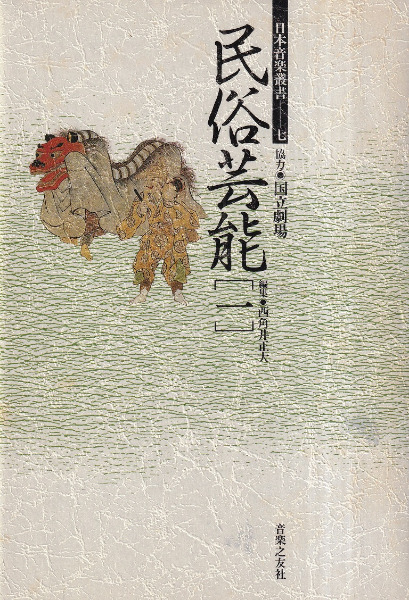 日本音楽叢書──七
協力●国立劇場
民俗芸能[一]
編集●西角井正大
音楽之友社